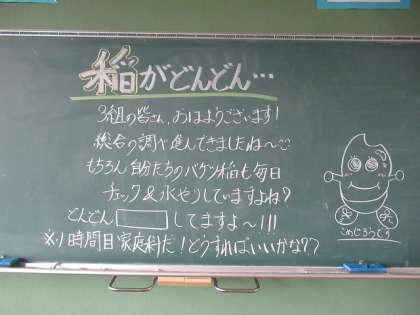 稲がどんどん…
3組の皆さん、おはようございます!
総合の調べ進んできましたね〜
もちろん自分たちのバケツ稲も毎日
チェック&水やりしていますよね?
どんどん してますよ〜!!!
※1時間目家庭科だ!どうすればいいかな??
こめじろうです